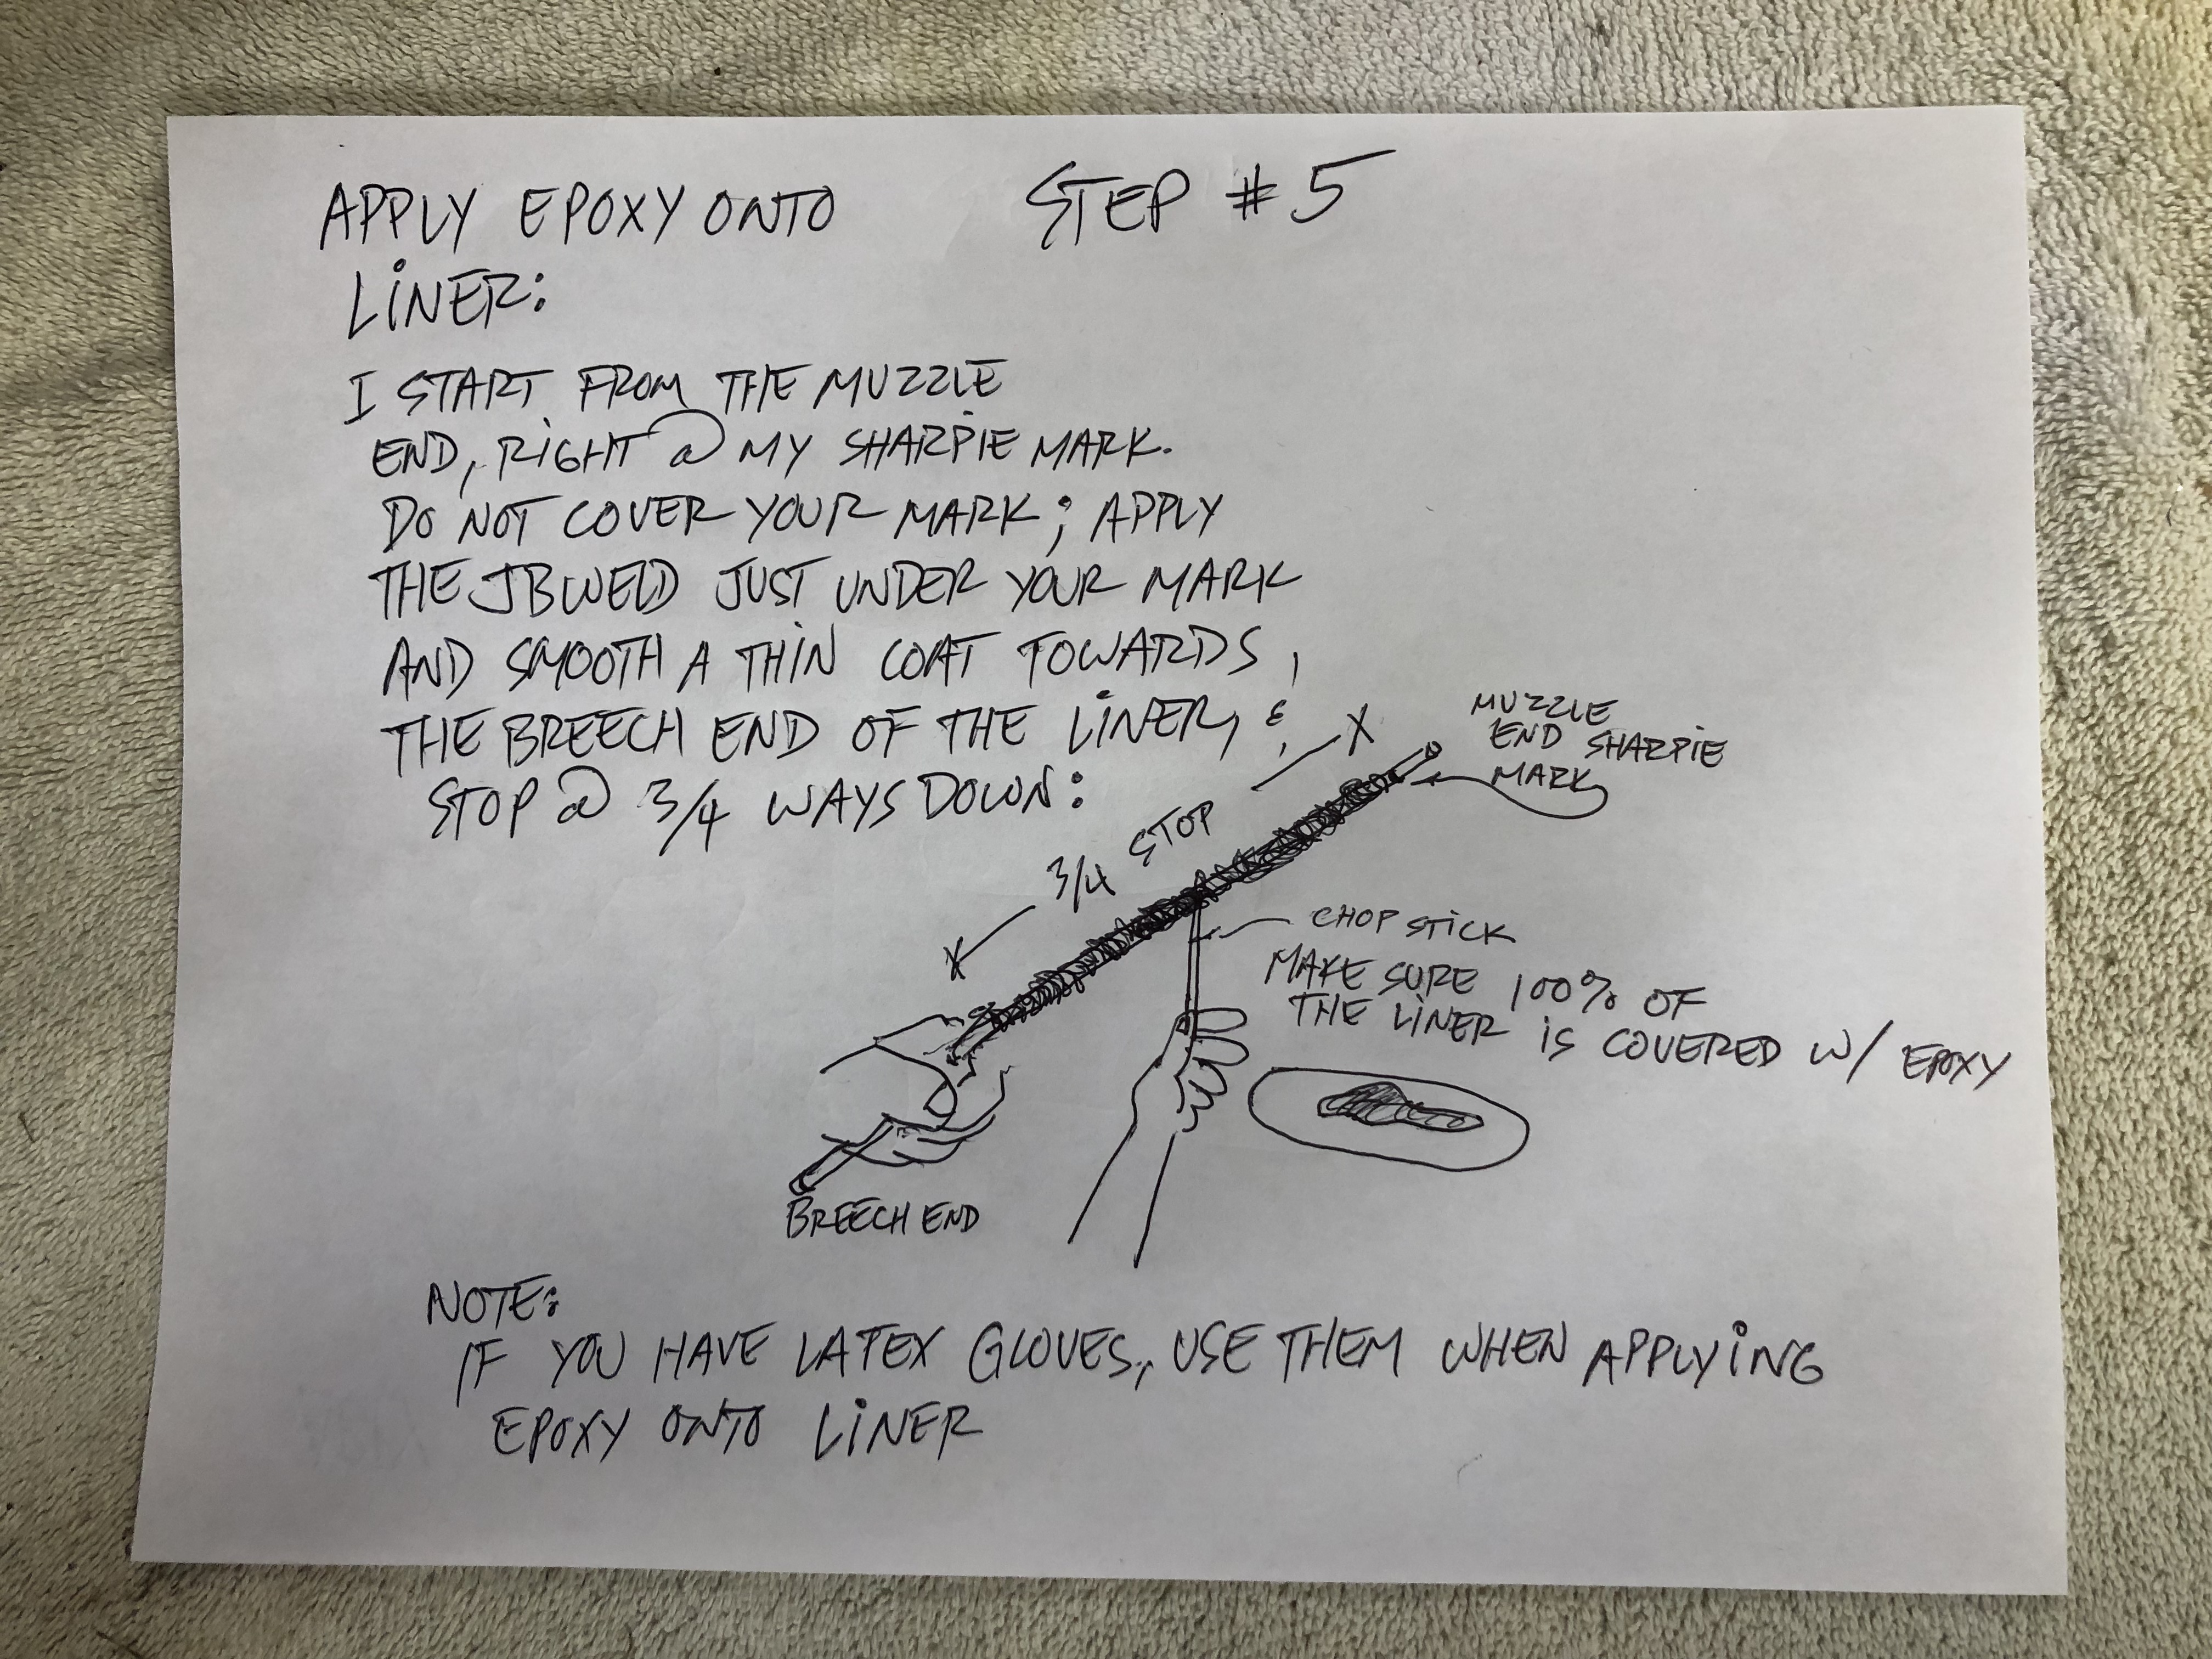 APPLY EPOXY ONTO
STEP #5
LINER:
I START FROM THE MUZZLE
END, RIGHT @ MY SHARPIE MARK.
DO NOT COVER YOUR MARK; APPLY
THE JBWELD JUST UNDER YOUR MARK
AND SMOOTH A THIN COAT TOWARDS
THE BREECH END OF THE LINER, &
STOP @ 3/4 WAYS DOWN:
X
MUZZLE
END SHARPIE
MARK
3/4 STOP
X
CHOP STICK
MAKE SURE 100% OF
THE LINER IS COVERED W/ EPOXY
BREECH END
NOTE:
IF YOU HAVE LATEX GLOVES, USE THEM WHEN APPLYING
EPOXY ONTO LINER